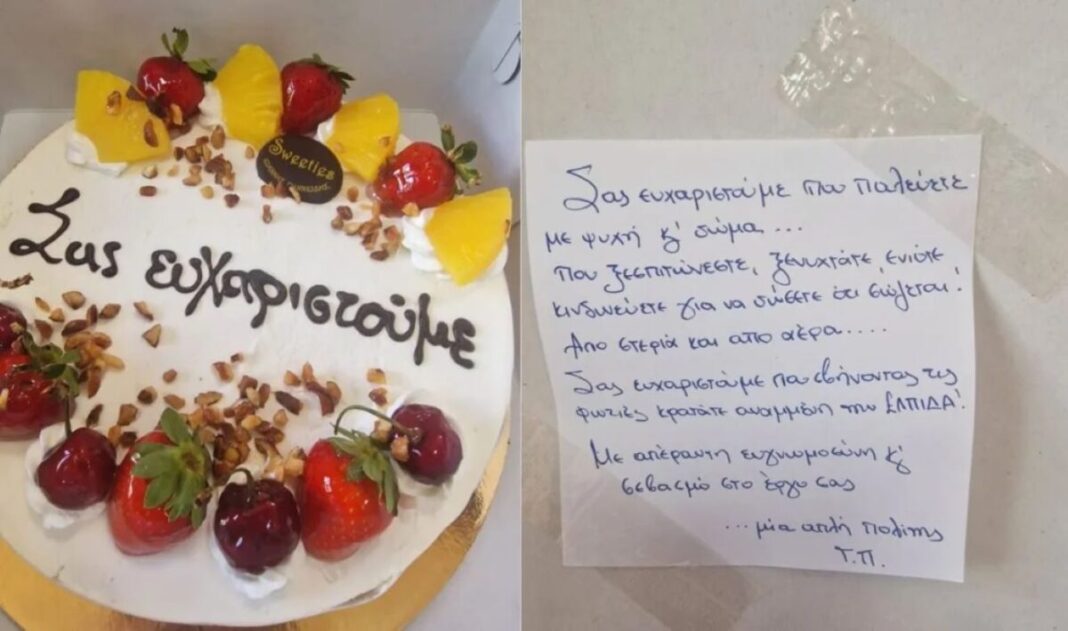 Sweeties
Σας ευχαριστούμε
Σας ευχαριστούμε που παλεύετε
με ψυχή κ' σώμα...
που ξεσπιτώνεστε, ξενυχτάτε, ενίοτε
κινδυνεύετε για να σώσετε ότι σώζεται!
Από στεριά και απο αέρα....
Σας ευχαριστούμε που σβήνοντας τις
φωτιές κρατάτε αναμμένη την ΕΛΠΙΔΑ!
Με απέραντη ευγνωμοσύνη κ'
σεβασμό στο έργο σας
...μία απλή πολίτης
Τ.Π.